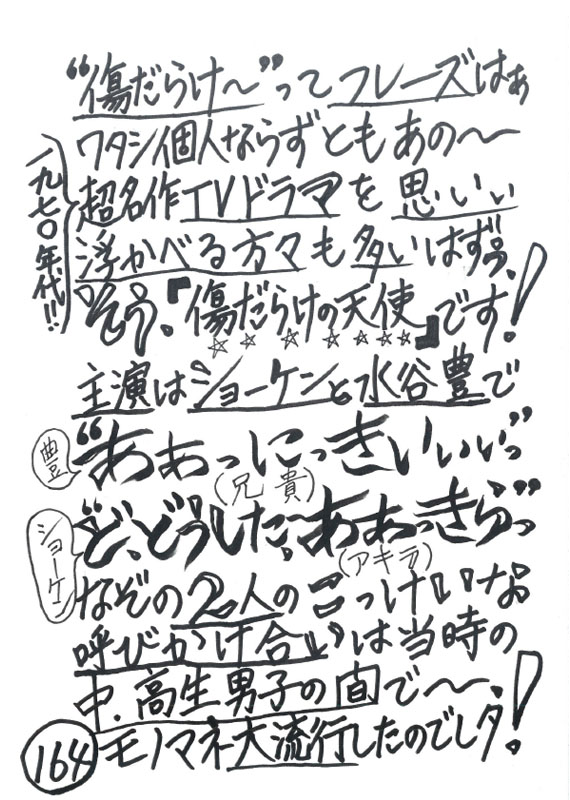 “傷だらけ〜”ってフレーズはぁ
ワタシ個人ならずともあの〜
一九七〇年代!!
超名作TVドラマを思いぃぃ
浮かべる方々も多いはずぅ、
そぅ、『傷だらけの天使』です!
☆☆☆☆☆☆☆
主演はショーケンと水谷豊で
豊
“あぁっにっきいぃぃっ”
(兄貴)
ショーケン
“ど、どうした、あぁっきらっ”
(アキラ)
なぞの2人のこっけいな
呼びかけ合いは当時の
中.高生男子の間で〜、
164
モノマネ大流行したのでしタ!